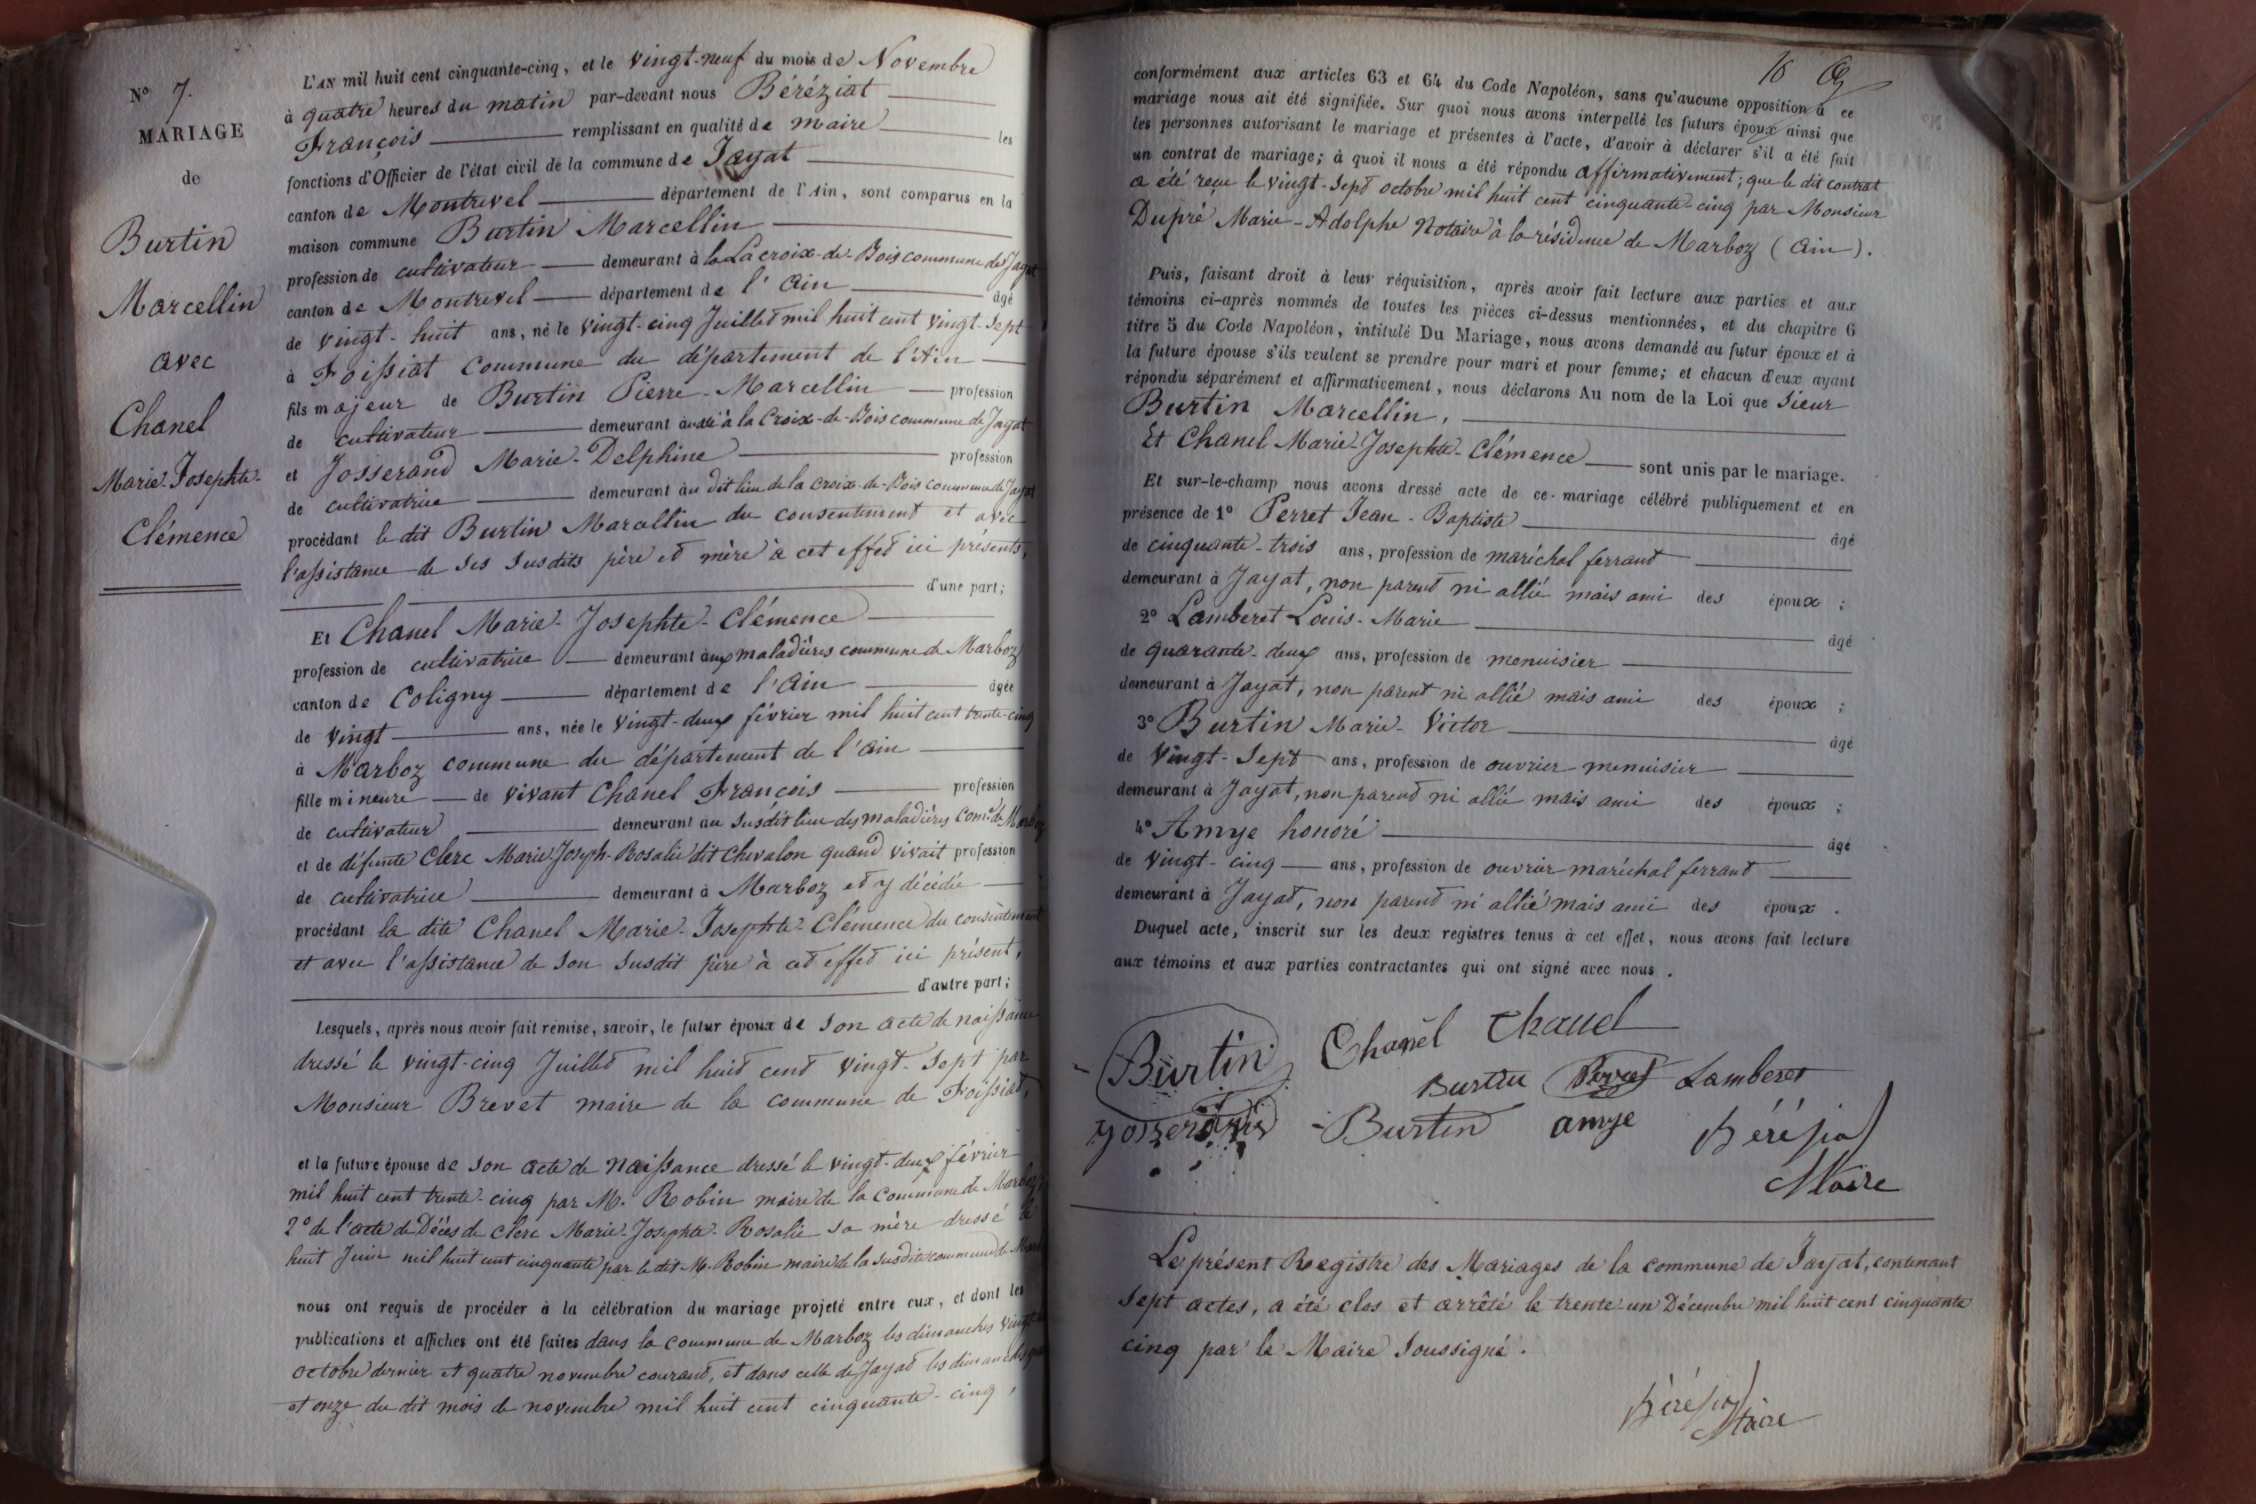 N° 7.
MARIAGE
de
Burtin
Marcellin
avec
Chanel
Marie-Josephte-
Clémence
L'AN mil huit cent cinquante-cinq, et le vingt-neuf du mois de Novembre
à quatre heures du matin par-devant nous Béréziat
François remplissant en qualité de maire les
fonctions d'Officier de l'état civil de la commune de Jayat
canton de Montrevel département de l'Ain, sont comparus en la
maison commune Burtin Marcellin
profession de cultivateur demeurant à la Lacroix-de-Bois commune de Jayat
canton de Montrevel département de l'Ain âgé
de vingt-huit ans, né le vingt-cinq Juillet mil huit cent vingt-sept
à Foissiat commune du département de l'Ain
fils majeur de Burtin Pierre-Marcellin profession
de cultivateur demeurant à la Croix-de-Bois commune de Jayat
et Josserand Marie-Delphine profession
de cultivatrice demeurant au dit lieu de la croix-de-Bois commune de Jayat
procédant le dit Burtin Marcellin du consentement et avec
l'assistance de ses susdits père et mère à cet effet ici présents,
d'une part;
Et Chanel Marie-Josephte-Clémence
profession de cultivatrice demeurant aux maladières commune de Marboz
canton de Coligny département de l'Ain âgée
de vingt ans, née le vingt-deux février mil huit cent trente-cinq
à Marboz commune du département de l'Ain
fille mineure de vivant Chanel François profession
de cultivateur demeurant au susdit lieu des maladières com.e de Marboz
et de défunte Clerc Marie Joseph-Rosalie dit Chevalon quand vivait profession
de cultivatrice demeurant à Marboz et y décédée
procédant la dite Chanel Marie-Josephte-Clémence du consentement
et avec l'assistance de son susdit père à cet effet ici présent,
d'autre part;
Lesquels, après nous avoir fait remise, savoir, le futur époux de son acte de naissance
dressé le vingt-cinq Juillet mil huit cent vingt-sept par
Monsieur Brevet maire de la commune de Foissiat,
et la future épouse de son acte de naissance dressé le vingt-deux février
mil huit cent trente-cinq par M. Robin maire de la commune de Marboz
2° de l'acte de Décès de Clerc Marie-Josephte-Rosalie sa mère dressé le
huit Juin mil huit cent cinquante par le dit M. Robin maire de la susdite commune de Marboz
nous ont requis de procéder à la célébration du mariage projeté entre eux, et dont les
publications et affiches ont été faites dans la commune de Marboz les dimanches vingt
octobre dernier et quatre novembre courant, et dans celle de Jayat les dimanches
et onze du dit mois de novembre mil huit cent cinquante-cinq,
10
conformément aux articles 63 et 64 du Code Napoléon, sans qu'aucune opposition à ce
mariage nous ait été signifiée. Sur quoi nous avons interpellé les futurs époux ainsi que
les personnes autorisant le mariage et présentes à l'acte, d'avoir à déclarer s'il a été fait
un contrat de mariage; à quoi il nous a été répondu affirmativement; que le dit contrat
a été reçu le vingt-sept octobre mil huit cent cinquante-cinq par Monsieur
Dupré Marie-Adolphe Notaire à la résidence de Marboz (Ain).
Puis, faisant droit à leur réquisition, après avoir fait lecture aux parties et aux
témoins ci-après nommés de toutes les pièces ci-dessus mentionnées, et du chapitre 6
titre 5 du Code Napoléon, intitulé Du Mariage, nous avons demandé au futur époux et à
la future épouse s'ils veulent se prendre pour mari et pour femme; et chacun d'eux ayant
répondu séparément et affirmativement, nous déclarons Au nom de la Loi que sieur
Burtin Marcellin,
Et Chanel Marie-Josephte-Clémence sont unis par le mariage.
Et sur-le-champ nous avons dressé acte de ce mariage célébré publiquement et en
présence de 1° Perret Jean-Baptiste âgé
de cinquante-trois ans, profession de maréchal ferrant
demeurant à Jayat, non parent ni allié mais ami des époux;
2° Lamberet Louis-Marie âgé
de quarante-deux ans, profession de menuisier
demeurant à Jayat, non parent ni allié mais ami des époux;
3° Burtin Marie-Victor âgé
de vingt-sept ans, profession de ouvrier menuisier
demeurant à Jayat, non parent ni allié mais ami des époux;
4° Amye honoré âgé
de vingt-cinq ans, profession de ouvrier maréchal ferrant
demeurant à Jayat, non parent ni allié mais ami des époux.
Duquel acte, inscrit sur les deux registres tenus à cet effet, nous avons fait lecture
aux témoins et aux parties contractantes qui ont signé avec nous.
Burtin Chanel Chanel
Burtin Perret Lamberet
Burtin amye Béréziat
Maire
Le présent Registre des Mariages de la commune de Jayat, contenant
sept actes, a été clos et arrêté le trente-un Décembre mil huit cent cinquante
cinq par le Maire soussigné.
Béréziat
Maire